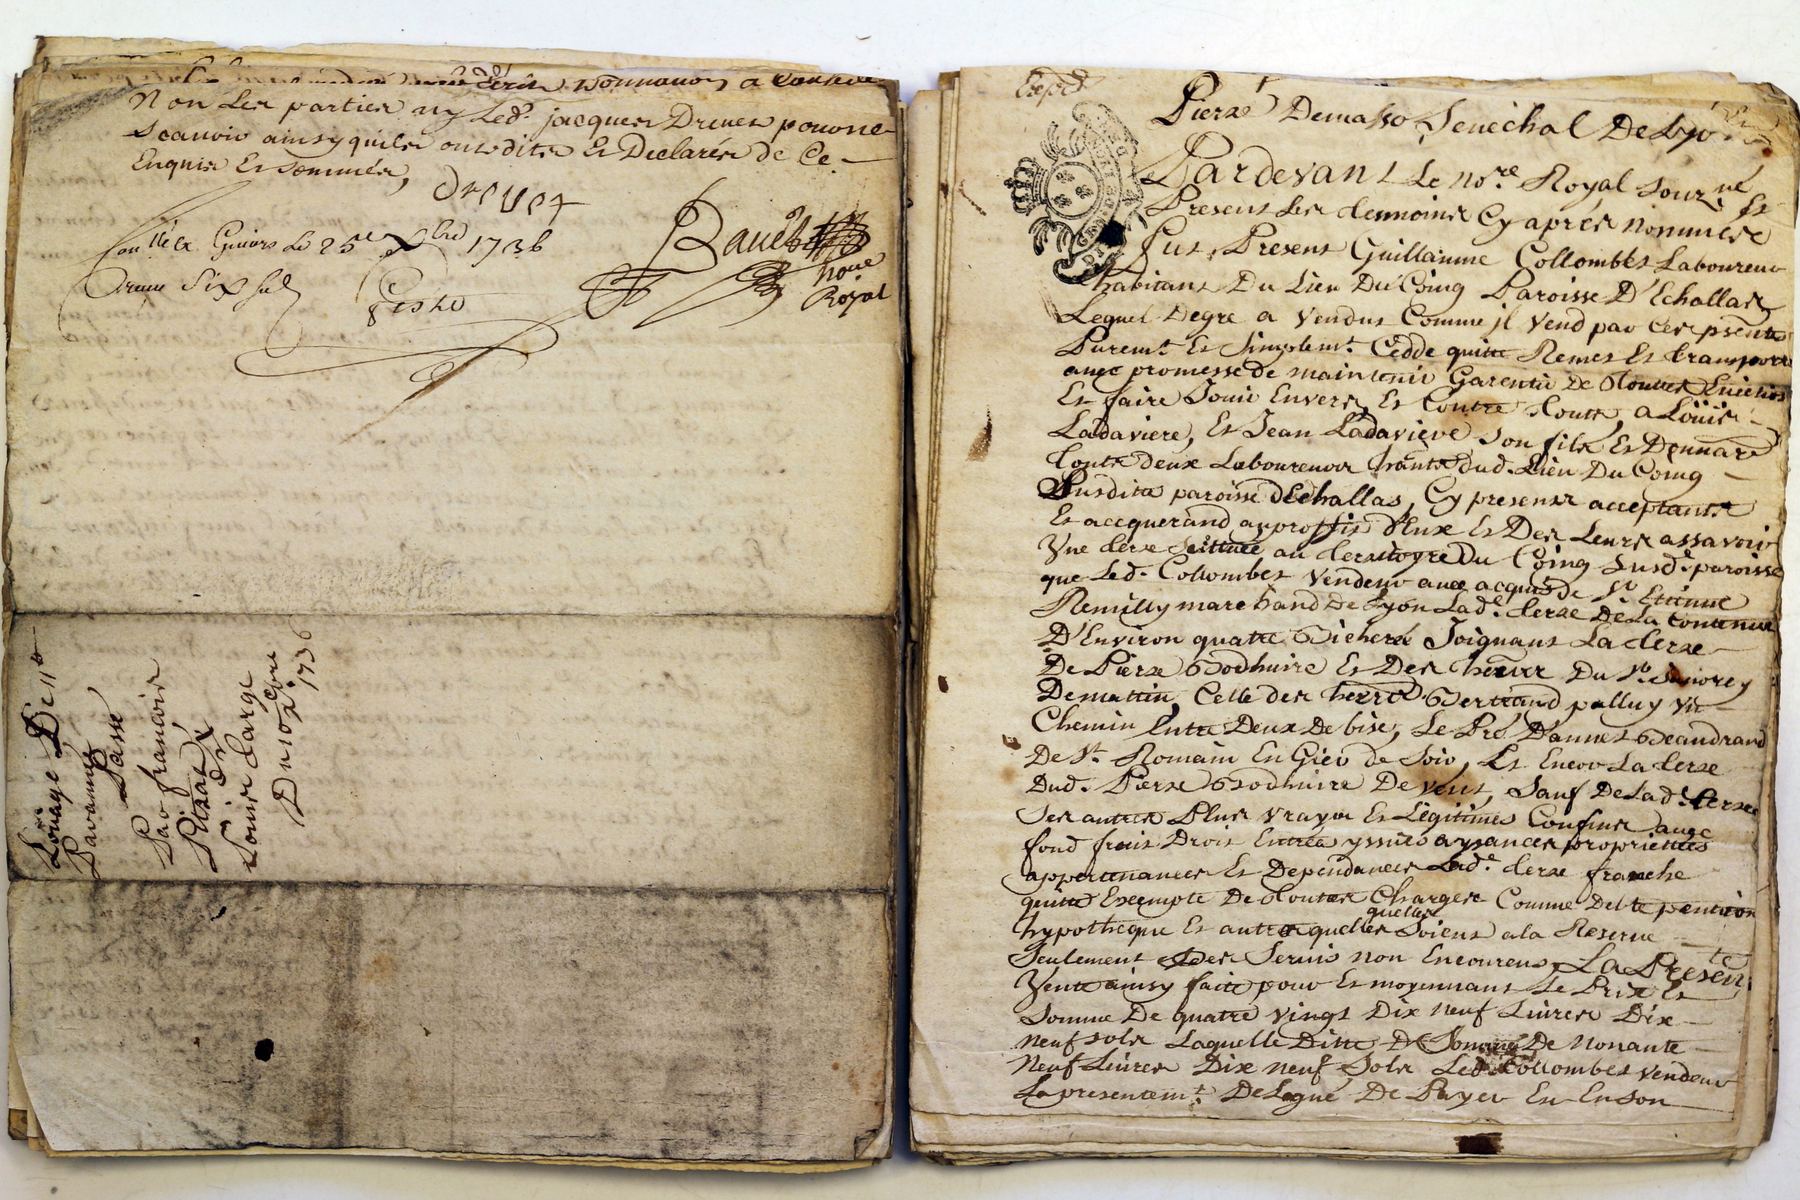 Non les parties ny led. jacques Drevet pour ne
Scauoir ainsy quils ont dit et Declarés de Ce
Enquis Et sommés,
Drevet
Conlle a Givors le 25e Xbre 1736
Six sols
noue
Royal
Louage De
Pavanne
Passé
Par francois
Pitrat
a
Louis Large
Du 10 xbre
1736
Expéd
Pierre Demasso Senechal De Lyo
Pardevant Le nore Royal Sousné Et
Present Les temoins Cy aprés nommés
fut Present Guillaume Collombet Laboureur
habitant Du Lieu Du Coing Paroisse D'Echallas
Lequel Degré a Vendus Comme jl Vend par Ces psentes
Puremt. Et Simplemt. Cedde quitte Remet Et transporte
avec promesse de maintenir Garentir De Toutes Evictions
Et faire Jouir Envers, Et Contre Touts, a Loüis
Ladaviere, Et Jean Ladaviere Son fils Et Donnaré
Touts deux Laboureurs hants dud. Lieu Du Coing
Susdite paroisse d'Echallas, Cy presents acceptants
Et accquerand approffit d'Eux Et Des Leurs assavoir
Vne terre scittuée au territoyre Du Coing Susd. paroisse
que Led. Collombet Vendeur avec acquis de Sr. Etienne
Remilly marchand De Lyon Lad. terre De La Contenue
D'Environ quatre Bicherés Joignant La terre
De Pierre Bodhuire Et Des hoirs Du Sr.
De mattin, Celle des Bertrand palluy Vn
Chemin Entre Deux De bise, Le Pré D'annet Beaudrand
De St. Romain En Gier de Soir, Et Encor La terre
Dud. Pierre Bodhuire De vent, Sauf De Lad. terre
Ses autres Plus Vrayes Et Légitimes Confins avec
fond frait Droit Entrées yssues aysances proprietées
appartenances Et Dependances Lade terre franche
quitte Exempte De Toutes Charges Comme Debte pention
hypotheque Et autre quelles quelles Soient a la Reserve
Seulement des Servis non Encourus, La Presente
Vente ainsy faite pour Et moyennant Le Prix Et
Somme De quatre Vingt Dix neuf Livres Dix
neuf sols Laquelle Ditte Somme De nonante
Neuf Livres Dix neuf Sols Led. Collombet Vendeur
La presentemt. Delegué De Payer En Enson